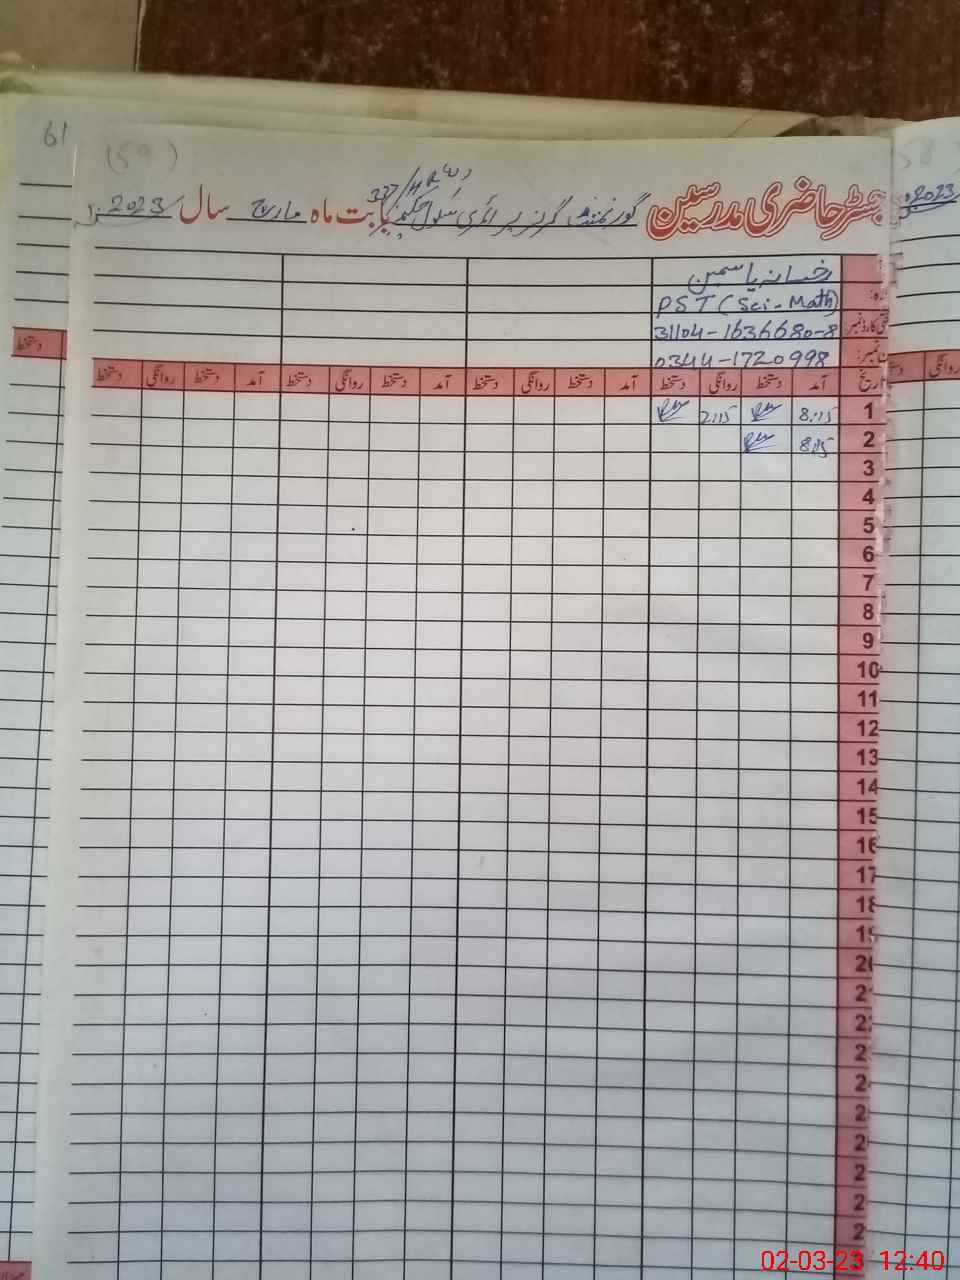 61
(59)
58
رجسٹر حاضری مدرسین گورنمنٹ گرلز پرائمری سکول 337/HR بابت ماہ مارچ سال 2023
2023
رخسانہ یاسمین
PST (Sci-Math)
31104-1636680-8
0344-1720998
تاریخ آمد دستخط روانگی دستخط آمد دستخط روانگی دستخط آمد دستخط روانگی دستخط آمد دستخط روانگی دستخط
دستخط
روانگی
1 8:15 2:15
2 8:15
3
4
5
6
7
8
9
10
11
12
13
14
15
16
17
18
19
20
21
22
23
24
2
2
2
2
2
3
02-03-23 12:40